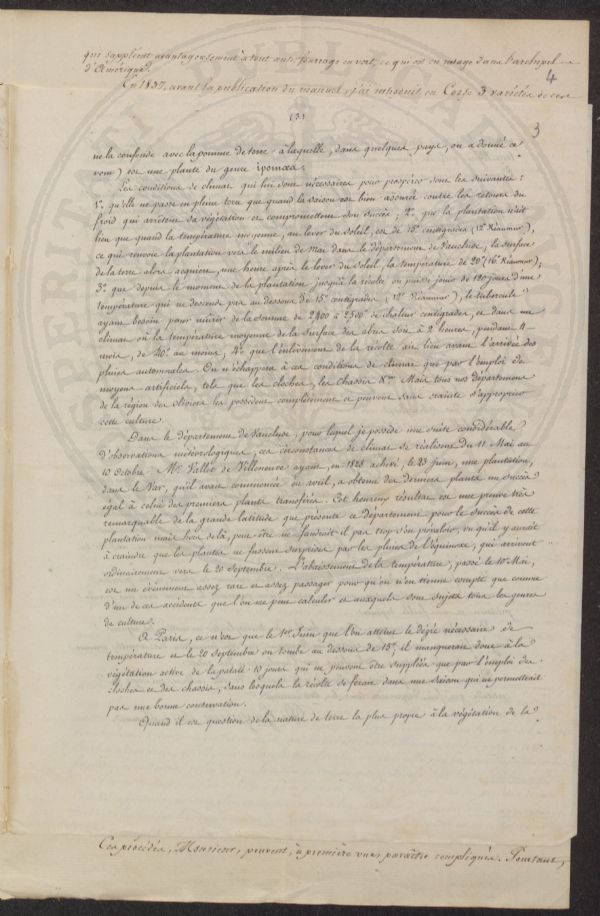 que suppléent avantageusement à tout autre fourrage en vert, ce qui est en usage dans l'archipel
d'Amérique.
4
En 1837, avant la publication du manuel, j'ai introduit en Corse 3 variétés de ces
(3)
3
ne la confonde avec la pomme de terre à laquelle, dans quelques pays, on a donné ce
nom) est une plante du genre ipomœa.
Les conditions de climat qui lui sont nécessaires pour prospérer sont les suivantes :
1° qu'elle ne passe en pleine terre que quand la saison est bien assurée contre les retours du
froid qui arrêtent sa végétation et compromettent son succès ; 2° que la plantation n'ait
lieu que quand la température moyenne, au lever du soleil, est de 15° centigrades (12° Réaumur),
ce qui renvoie la plantation vers le milieu de mai dans le département de Vaucluse, la surface
de la terre alors acquiert, une heure après le lever du soleil, la température de 20° (16° Réaumur) ;
3° que depuis le moment de la plantation jusqu'à la récolte on puisse jouir de 120 jours d'une
température qui ne descende pas au dessous de 15° centigrades (12° Réaumur), le tubercule
ayant besoin pour mûrir de la somme de 2400 à 2500° de chaleur centigrades, et dans un
climat où la température moyenne de la surface des abres soit à 2 heures, pendant 4
mois, de 40° au moins, 4° que l'enlèvement de la récolte ait lieu avant l'arrivée des
pluies automnales. On n'échappera à ces conditions de climat que par l'emploi de
moyens artificiels, tels que les cloches, les chassis &ca. Mais tous nos départements
de la région des oliviers les possèdent complètement et peuvent sans crainte s'approprier
cette culture.
Dans le département de Vaucluse, pour lequel je possède une suite considérable
d'observations météorologiques, ces circonstances de climat se réalisent du 11 Mai au
10 Octobre. Mr. Vallet de Villeneuve ayant, en 1828 achevé, le 23 juin, une plantation,
dans le Var, qu'il avait commencée en avril, a obtenu des derniers plants un succès
égal à celui des premiers plants transférés. Cet heureux résultat est une preuve très
remarquable de la grande latitude que présente ce département pour le succès de cette
plantation mais hors de là, peut être ne faudrait il pas trop s'en prévaloir, vu qu'il y aurait
à craindre que les plantes ne fussent surprises par les pluies de l'équinoxe, qui arrivent
ordinairement vers le 20 septembre. L'abaissement de la température, passé le 10 Mai,
est un évènement assez rare et assez passager pour qu'on n'en tienne compte que comme
d'un de ces accidents que l'on ne peut calculer et auxquels sont sujets tous les genres
de culture.
A Paris, ce n'est que le 1er Juin que l'on atteint le dégré nécessaire de
température et le 20 septembre on tombe au dessous de 15°, il manquerait donc à la
végétation active de la patate 10 jours qui ne peuvent être suppléés que par l'emploi des
cloches et des chassis, sans lesquels la récolte se ferait dans une saison qui ne permettrait
pas une bonne conservation.
Quand il est question de la nature de terre la plus propre à la végétation de la
Ces procédés, Monsieur, peuvent, à première vue, paraître compliqués. Pourtant,